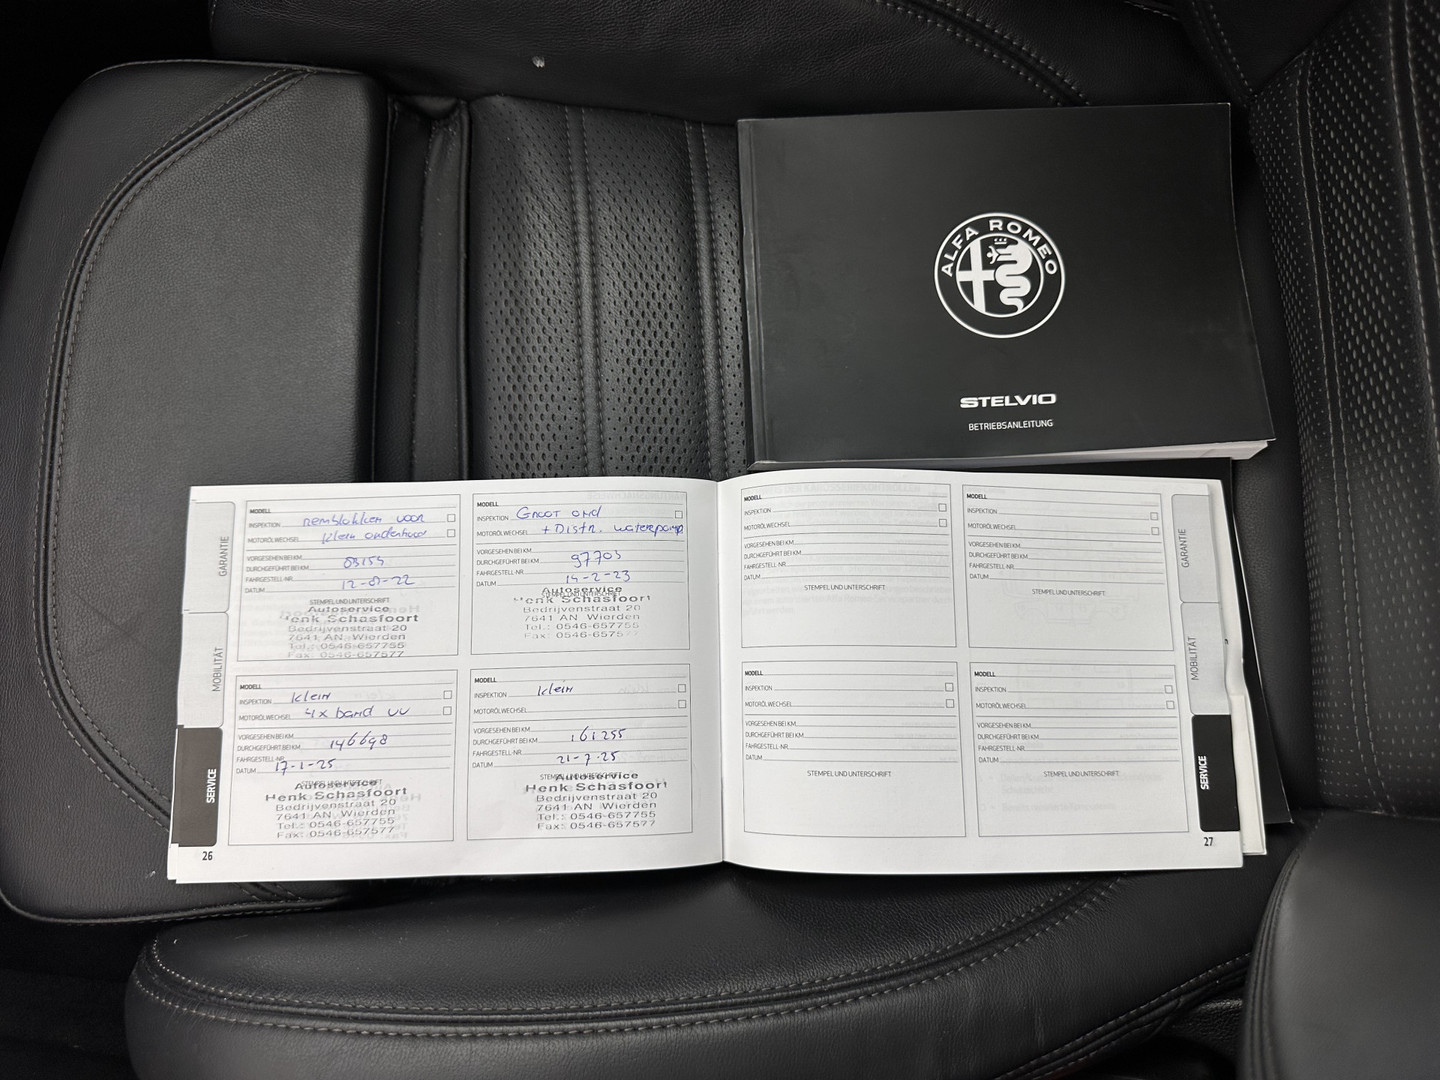 ALFA ROMEO
STELVIO
BETRIEBSANLEITUNG
GARANTIE
MOBILITÄT
SERVICE
MODELL
INSPEKTION remblokken voor
MOTORÖLWECHSEL klein onderhoud
VORGESEHEN BEI KM
DURCHGEFÜHRT BEI KM
FAHRGESTELL-NR.
DATUM
STEMPEL UND UNTERSCHRIFT
Autoservice
Henk Schasfoort
Bedrijvenstraat 20
7641 AN Wierden
Tel.: 0546-657755
Fax: 0546-657577
MODELL
INSPEKTION Groot ond
MOTORÖLWECHSEL + Distr. waterpomp
VORGESEHEN BEI KM
DURCHGEFÜHRT BEI KM 97703
FAHRGESTELL-NR.
DATUM 14-2-23
Autoservice
Henk Schasfoort
Bedrijvenstraat 20
7641 AN Wierden
Tel.: 0546-657755
Fax: 0546-6575
MODELL
INSPEKTION klein
MOTORÖLWECHSEL 4x band vv
VORGESEHEN BEI KM
DURCHGEFÜHRT BEI KM 146698
FAHRGESTELL-NR.
DATUM 17-1-25
STEMPEL UND UNTERSCHRIFT
Autoservice
Henk Schasfoort
Bedrijvenstraat 20
7641 AN Wierden
Tel.: 0546-657755
Fax: 0546-657577
MODELL
INSPEKTION klein
MOTORÖLWECHSEL
VORGESEHEN BEI KM
DURCHGEFÜHRT BEI KM 161255
FAHRGESTELL-NR.
DATUM 21-7-25
STEMPEL UND UNTERSCHRIFT
Autoservice
Henk Schasfoort
Bedrijvenstraat 20
7641 AN Wierden
Tel.: 0546-657755
Fax: 0546-657577
26
MODELL
INSPEKTION
MOTORÖLWECHSEL
VORGESEHEN BEI KM
DURCHGEFÜHRT BEI KM
FAHRGESTELL-NR.
DATUM
STEMPEL UND UNTERSCHRIFT
MODELL
INSPEKTION
MOTORÖLWECHSEL
VORGESEHEN BEI KM
DURCHGEFÜHRT BEI KM
FAHRGESTELL-NR.
DATUM
STEMPEL UND UNTERSCHRIFT
MODELL
INSPEKTION
MOTORÖLWECHSEL
VORGESEHEN BEI KM
DURCHGEFÜHRT BEI KM
FAHRGESTELL-NR.
DATUM
STEMPEL UND UNTERSCHRIFT
MODELL
INSPEKTION
MOTORÖLWECHSEL
VORGESEHEN BEI KM
DURCHGEFÜHRT BEI KM
FAHRGESTELL-NR.
DATUM
STEMPEL UND UNTERSCHRIFT
GARANTIE
MOBILITÄT
SERVICE
27